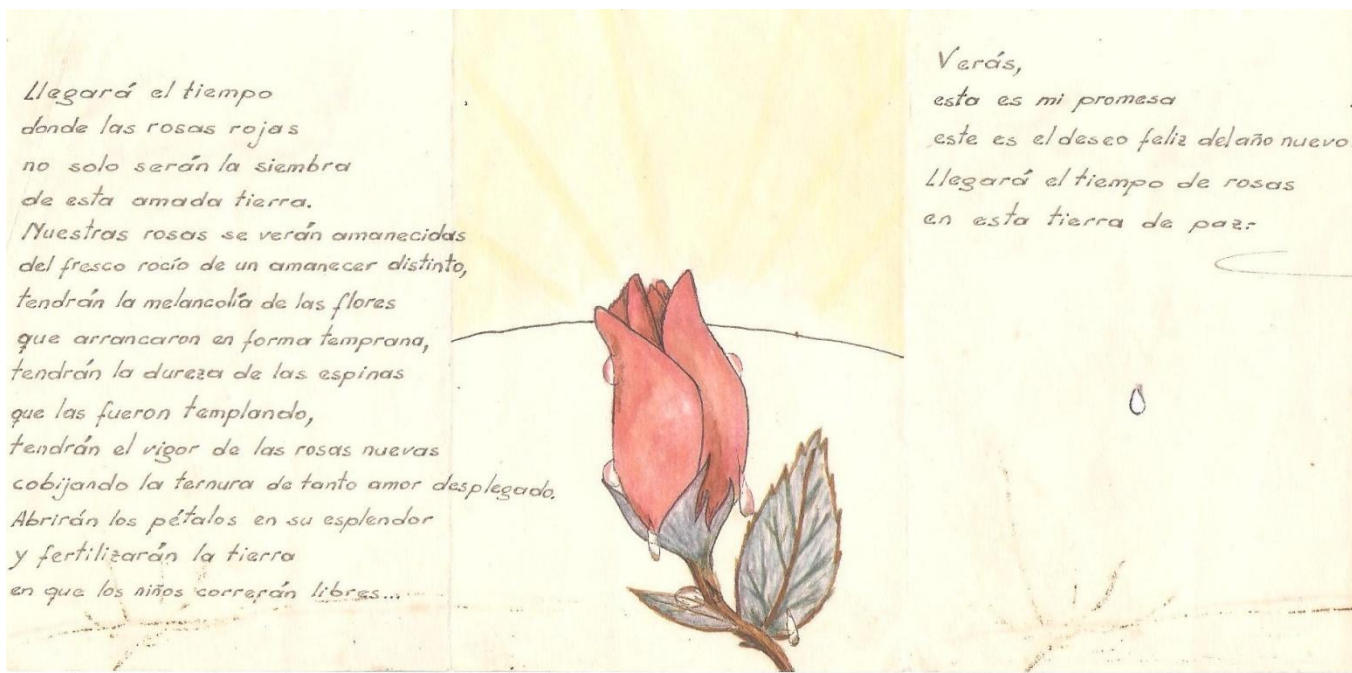 Llegará el tiempo
donde las rosas rojas
no solo serán la siembra
de esta amada tierra.
Nuestras rosas se verán amanecidas
del fresco rocío de un amanecer distinto,
tendrán la melancolía de las flores
que arrancaron en forma temprana,
tendrán la dureza de las espinas
que las fueron templando,
tendrán el vigor de las rosas nuevas
cobijando la ternura de tanto amor desplegado.
Abrirán los pétalos en su esplendor
y fertilizarán la tierra
en que los niños correrán libres...
Verás,
esta es mi promesa
este es el deseo feliz del año nuevo
Llegará el tiempo de rosas
en esta tierra de paz.-